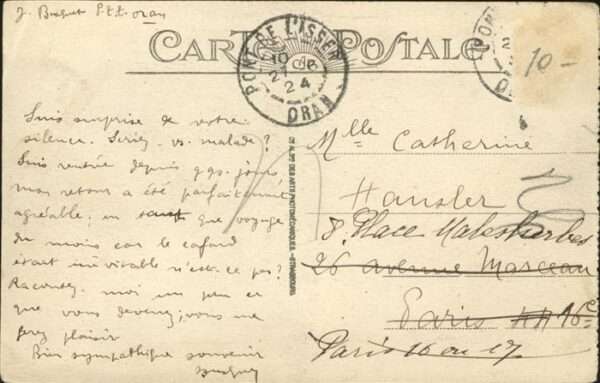 J. Busquet P.t.t. oran
CARTE POSTALE
PONT DE L'ISSER
10
27 08
24
ORAN
10-
Suis surprise de votre
silence. Seriez. vs. malade?
Suis rentrée depuis qqs. jours
mon retour a été parfaitement
agréable. en tant que voyage
du moins car le cafard
était inévitable n'est-ce pas?
Racontez. moi un peu ce
que vous devenez; vous me
ferez plaisir
Bien sympathique souvenir
Mlle Catherine
Hansler
8. Place Malesherbes
26 avenue Marceau
Paris 16e
Paris 16 ou 17